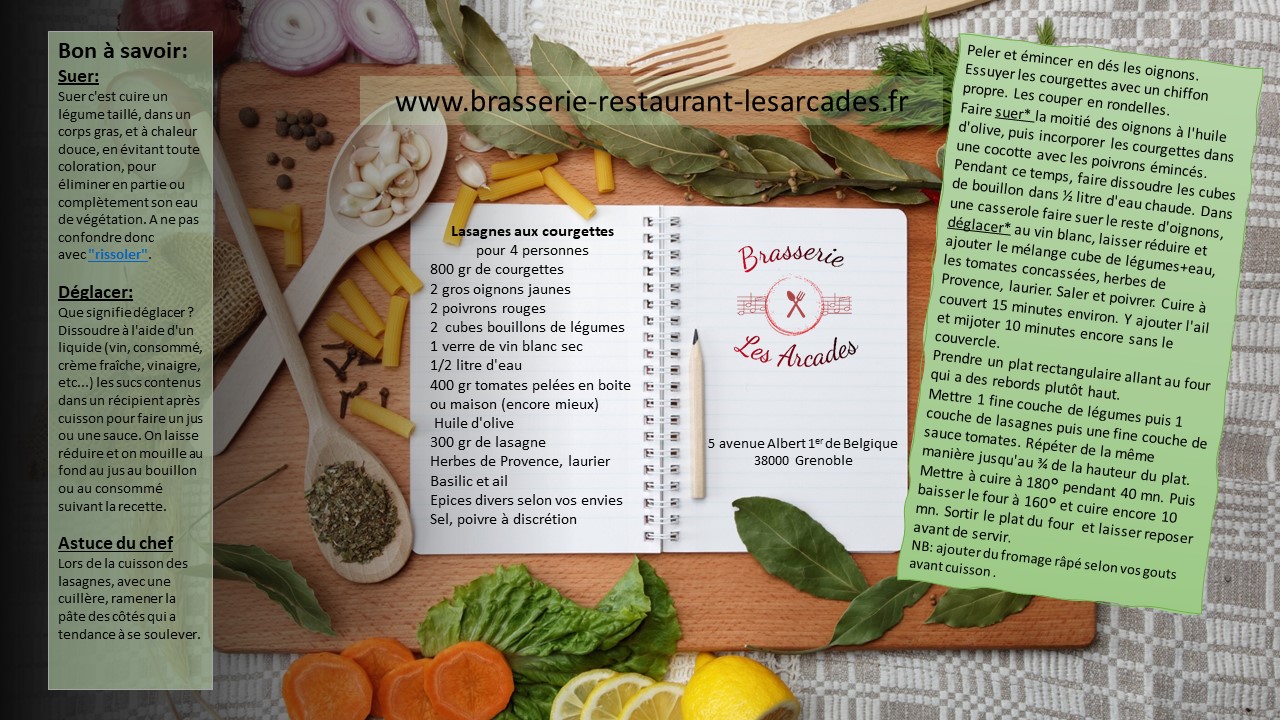 Bon à savoir:
Suer:
Suer c'est cuire un
légume taillé, dans un
corps gras, et à chaleur
douce, en évitant toute
coloration, pour
éliminer en partie ou
complètement son eau
de végétation. A ne pas
confondre donc
avec "rissoler".
Déglacer:
Que signifie déglacer ?
Dissoudre à l'aide d'un
liquide (vin, consommé,
crème fraîche, vinaigre,
etc...) les sucs contenus
dans un récipient après
cuisson pour faire un jus
ou une sauce. On laisse
réduire et on mouille au
fond au jus au bouillon
ou au consommé
suivant la recette.
Astuce du chef
Lors de la cuisson des
lasagnes, avec une
cuillère, ramener la
pâte des côtés qui a
tendance à se soulever.
www.brasserie-restaurant-lesarcades.fr
Lasagnes aux courgettes
pour 4 personnes
800 gr de courgettes
2 gros oignons jaunes
2 poivrons rouges
2 cubes bouillons de légumes
1 verre de vin blanc sec
1/2 litre d'eau
400 gr tomates pelées en boite
ou maison (encore mieux)
Huile d'olive
300 gr de lasagne
Herbes de Provence, laurier
Basilic et ail
Epices divers selon vos envies
Sel, poivre à discrétion
Brasserie
Les Arcades
5 avenue Albert 1er de Belgique
38000 Grenoble
Peler et émincer en dés les oignons.
Essuyer les courgettes avec un chiffon
propre. Les couper en rondelles.
Faire suer* la moitié des oignons à l'huile
d'olive, puis incorporer les courgettes dans
une cocotte avec les poivrons émincés.
Pendant ce temps, faire dissoudre les cubes
de bouillon dans ½ litre d'eau chaude. Dans
une casserole faire suer le reste d'oignons,
déglacer* au vin blanc, laisser réduire et
ajouter le mélange cube de légumes+eau,
les tomates concassées, herbes de
Provence, laurier. Saler et poivrer. Cuire à
couvert 15 minutes environ. Y ajouter l'ail
et mijoter 10 minutes encore sans le
couvercle.
Prendre un plat rectangulaire allant au four
qui a des rebords plutôt haut.
Mettre 1 fine couche de légumes puis 1
couche de lasagnes puis une fine couche de
sauce tomates. Répéter de la même
manière jusqu'au ¾ de la hauteur du plat.
Mettre à cuire à 180° pendant 40 mn. Puis
baisser le four à 160° et cuire encore 10
mn. Sortir le plat du four et laisser reposer
avant de servir.
NB: ajouter du fromage râpé selon vos gouts
avant cuisson .